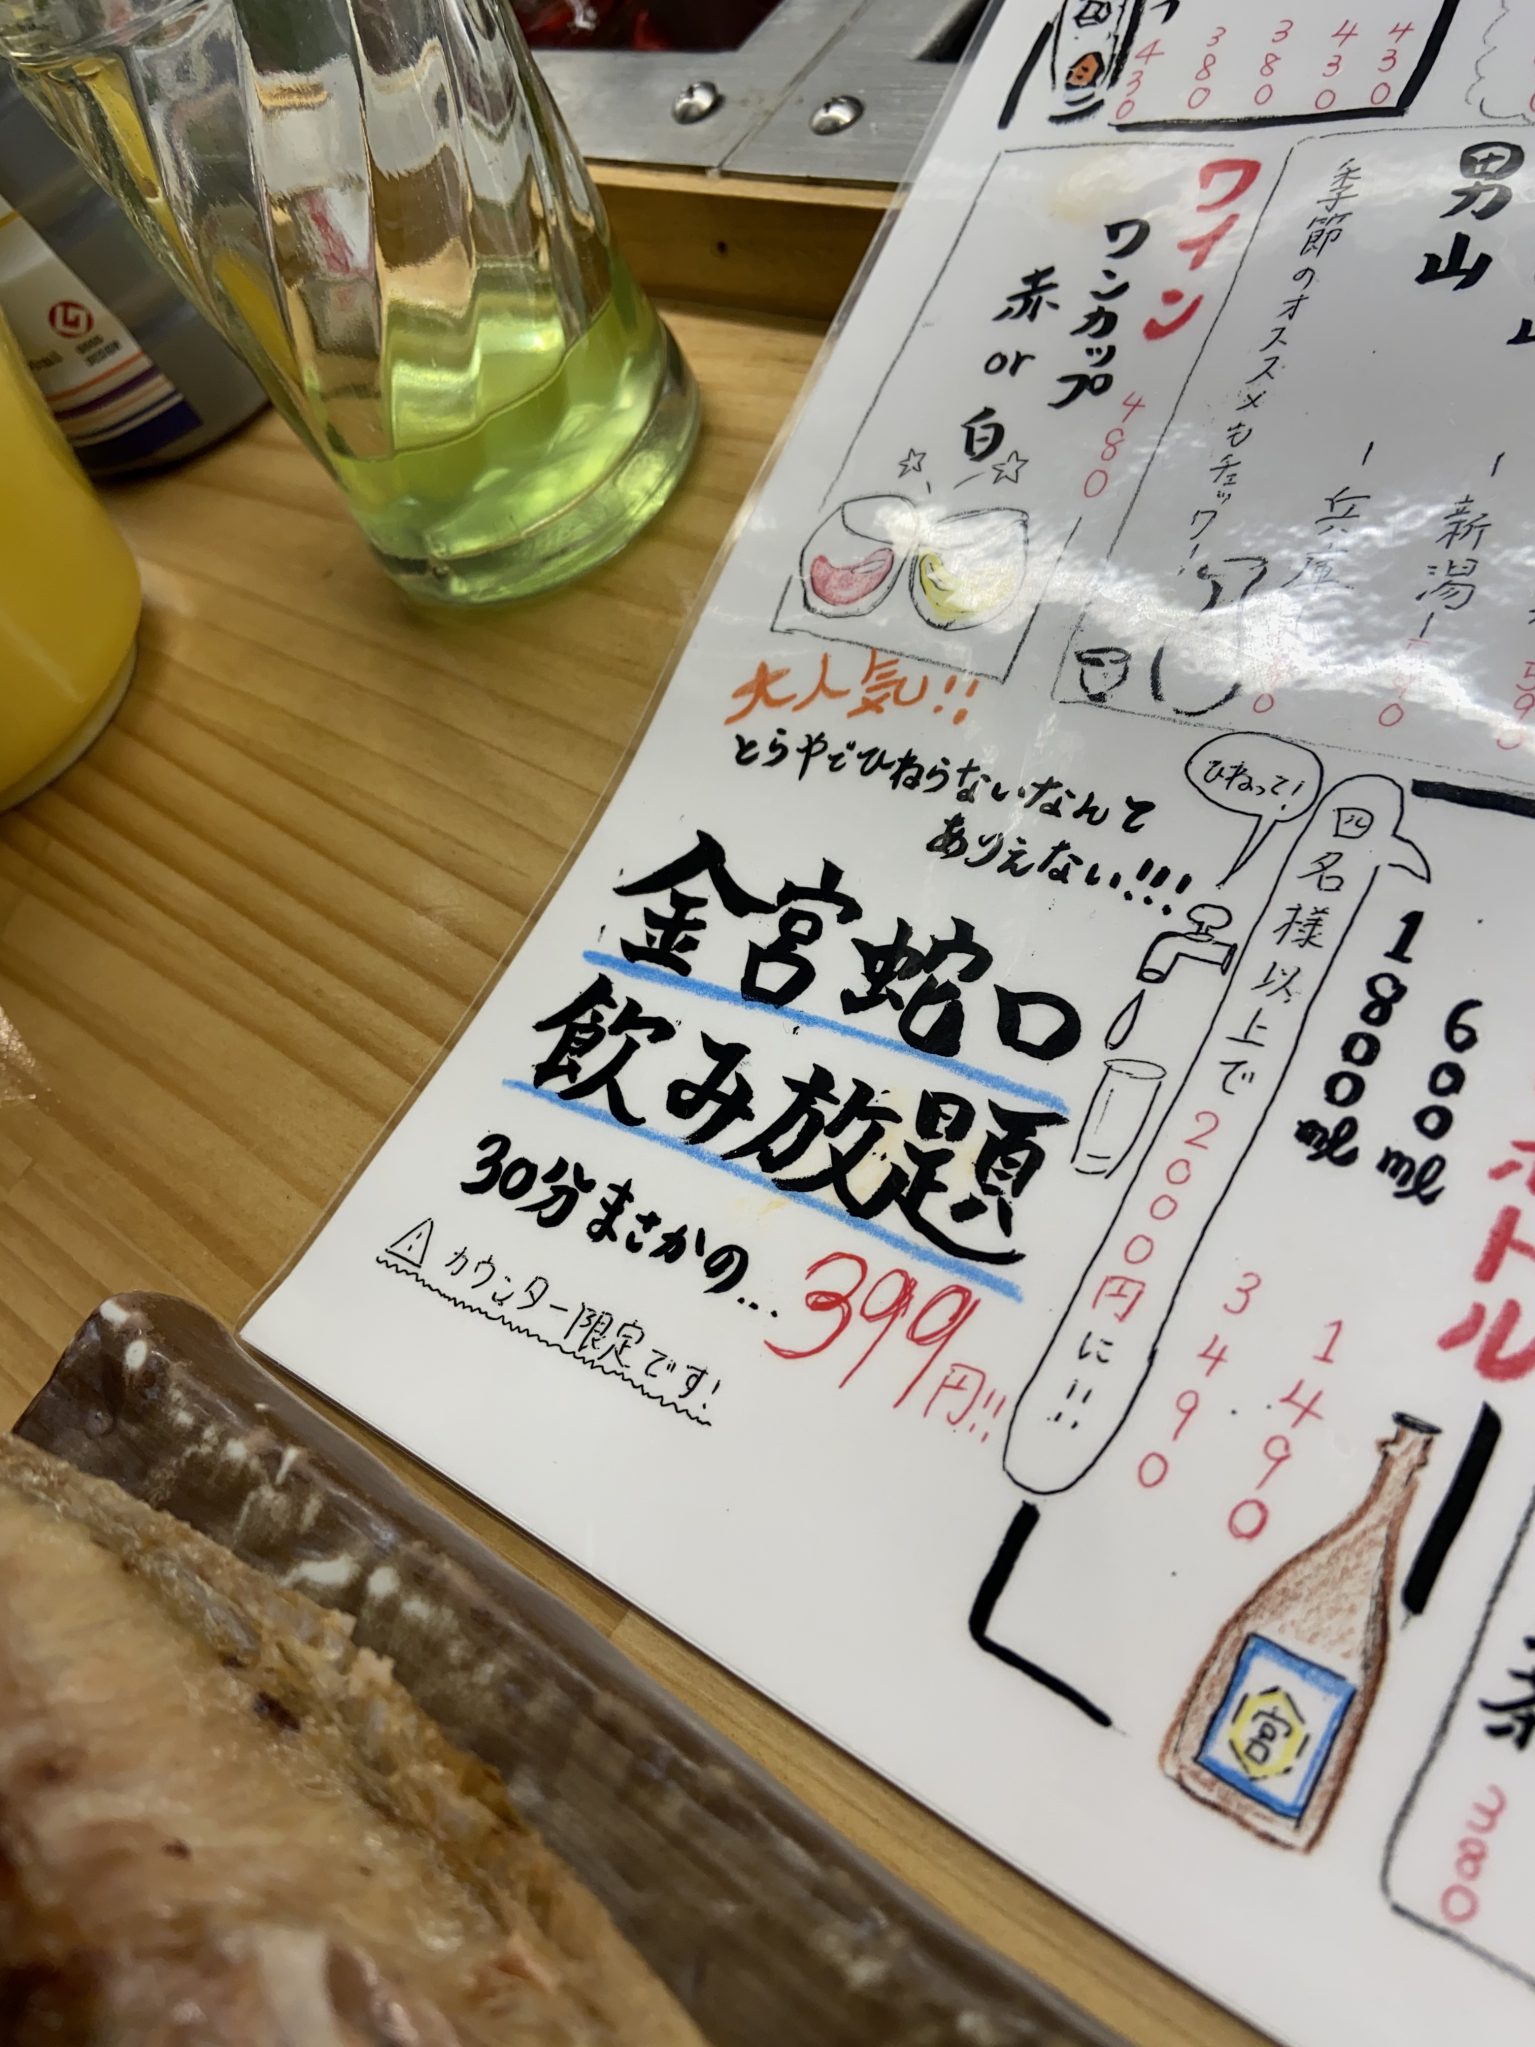 430
380
380
430
430
ワイン
ワンカップ
赤 or 白
480
男山
季節のオススメもチェック!
ー兵庫
ー新潟ー
大人気!!
とらやでひねらないなんて
ありえない!!!
ひねって!
金宮蛇口
飲み放題
30分まさかの…399円!!
カウンター限定です!
四名様以上で2000円に!!
600ml
1490
1800ml
3490
ボトル
宮
茶
380